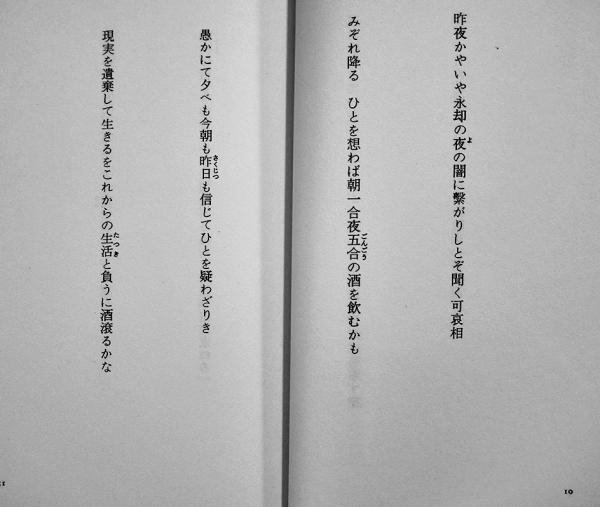 昨夜かやいや永却の夜の闇に繫がりしとぞ聞く可哀相
よ
みぞれ降る　ひとを想わば朝一合夜五合の酒を飲むかも
ごんごう
愚かにて夕べも今朝も昨日も信じてひとを疑わざりき
さくじつ
現実を遺棄して生きるをこれからの生活と負うに酒滾るかな
たつき
10